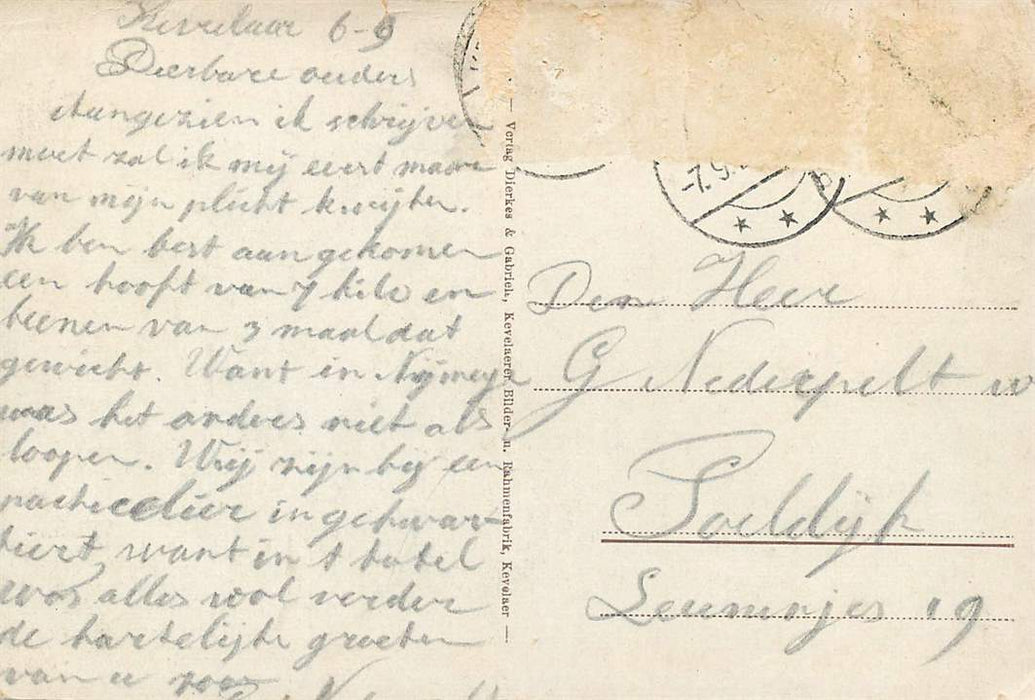 Kevelaar 6-9
Dierbare ouders
Aangezien ik schrijven
moet zal ik mij eerst maar
van mijn plicht kwijten.
Ik ben best aangekomen
een hooft van 7 kilo en
beenen van 3 maal dat
gewicht. Want in Nijmegn
was het anders niet als
loopen. Wij zijn bij een
particulier ingekwar-
tiert, want in t hotel
was alles vol verder
de hartelijke groeten
van u zoon
— Verlag Dierkes & Gabrieli, Kevelaerer Bilder- u. Rahmenfabrik, Kevelaer —
-7.9.
Den Heer
G Nederpelt w
Poeldijk
19